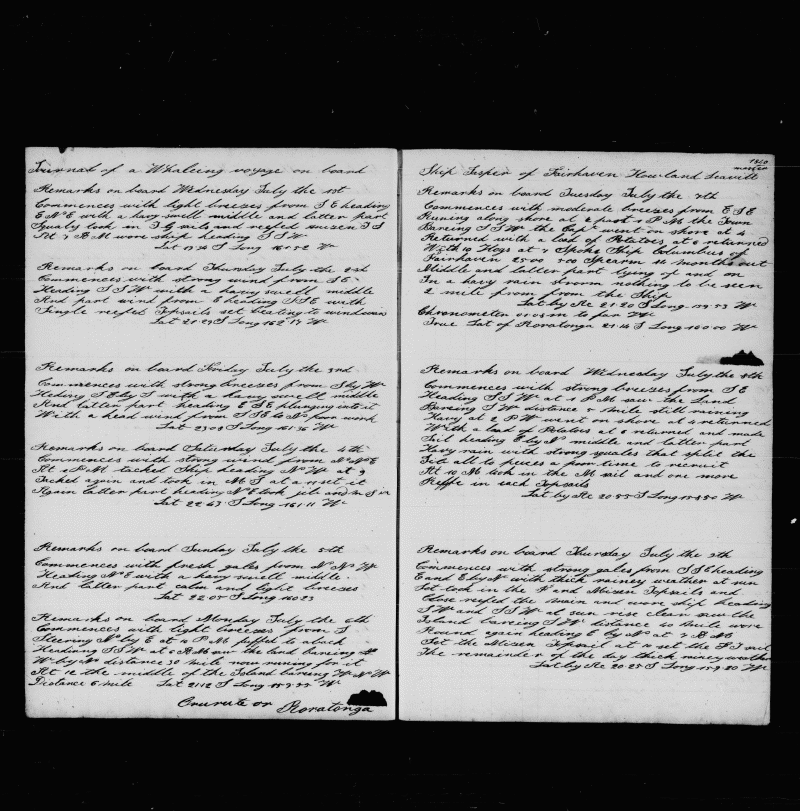 Journal of a Whaleing voyage on board
Remarks on board Wednesday July the 1st
Commences with light breezes from S E heading
E N E with a havy swell middle and latter part
Squaly took in T G sails and reefed mizen T S
At 7 A M wore ship heading S S W
Lat S Long W
Remarks on board Thursday July the 2nd
Commences with strong wind from S E
Heading S S W with a havy swell middle
And part wind from E heading S S E with
Single reefed Topsails set beating to windward
Lat 21-29 S Long 162-17 W
Remarks on board Friday July the 3rd
Commences with strong breezes from S by W
Heding S E by S with a havy swell middle
And latter part heading E S E plunging into it
With a head wind from S E to N poor work
Lat 23-08 S Long 161-36 W
Remarks on board Saturday July the 4th
Commences with strong wind from N N E
At 1 P M tacked Ship heading N W at 9
Tacked again and took in M S at 11 set it
Again latter part heading N E took jib and m S in
Lat 22-43 S Long 161-11 W
Remarks on board Sunday July the 5th
Commences with fresh gales from N N W
Heading N E with a havy swell middle
And latter part at calm and light breezes
Lat 22-05 S Long 160-23
Remarks on board Monday July the 6th
Commences with light breezes from S
Steering N by E at 4 P M luffed to aback
Heading S S W at 6 A M saw the land bareing
W by N distance 30 mile now runing for it
At 12 the middle of the Island bareing W N W
Distance 6 mile Lat 21-12 S Long 159-33 W
or Roratonga
1860
master
Ship Jesper of Fairhaven Howland Leavitt
Remarks on board Tuesday July the 7th
Commences with moderate breezes from E S E
Runing along shore at 2 past 1 P M the Town
Bareing S S W the Capt went on shore at 4
Returned with a load of Potatoes at 6 returned
With 10 Hogs at 7 Spoke Ship Columbus of
Fairhaven 2500 500 Spearm months out
Middle and latter part lying of and on
In a havy rain storm nothing to be seen
2 mile from from the Ship
Lat by Rc 21-20 S Long 159-53 W
Chronometer to far W
True Lat of Roratonga 21-14 S Long 160-00 W
Remarks on board Wednesday July the 8th
Commences with strong breezes from S E
Heading S S W at 1 P M saw the Land
Bareing S W distance 8 mile still raining
Havy at 2 P M went on shore at 4 returned
With a load of Potatoes at 6 returned and made
Sail heading E by N middle and latter part
Havy rain with strong squales that split the
Jib all to pieces a poor time to recruit
At 10 took in the M sail and one more
Reffe in each Topsails
Lat by Rc 20-55 S Long 159-50 W
Remarks on board Thursday July the 9th
Commences with strong gales from S S E heading
E and E by N with thick rainey weather at sun
Set took in the F and Mizen Topsails and
Close reefed the main and wore ship heading
S W and S S W at sun rise clear saw the
Island bareing S W distance 40 mile wore
Round again heading E by N at 7 A M
Set the Mizen Topsail at 10 set the F T sail
The remainder of the day thick rainey weather
Lat by Rc 20-25 S Long 159-20 W